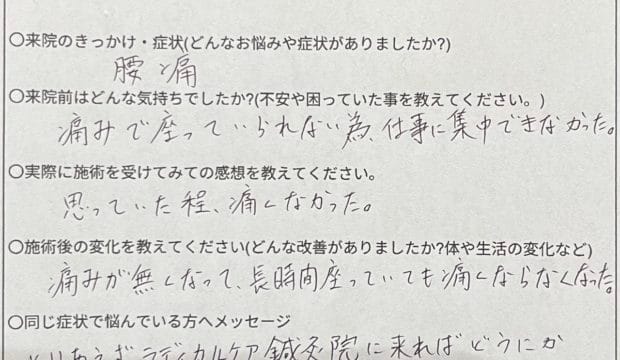 〇来院のきっかけ・症状(どんなお悩みや症状がありましたか?)
腰痛
〇来院前はどんな気持ちでしたか?(不安や困っていた事を教えてください。)
痛みで座っていられない為、仕事に集中できなかった。
〇実際に施術を受けてみての感想を教えてください。
思っていた程、痛くなかった。
〇施術後の変化を教えてください(どんな改善がありましたか?体や生活の変化など)
痛みが無くなって、長時間座っていても痛くならなくなった。
〇同じ症状で悩んでいる方へメッセージ
とりあえずラディカルケア鍼灸院に来ればどうにか